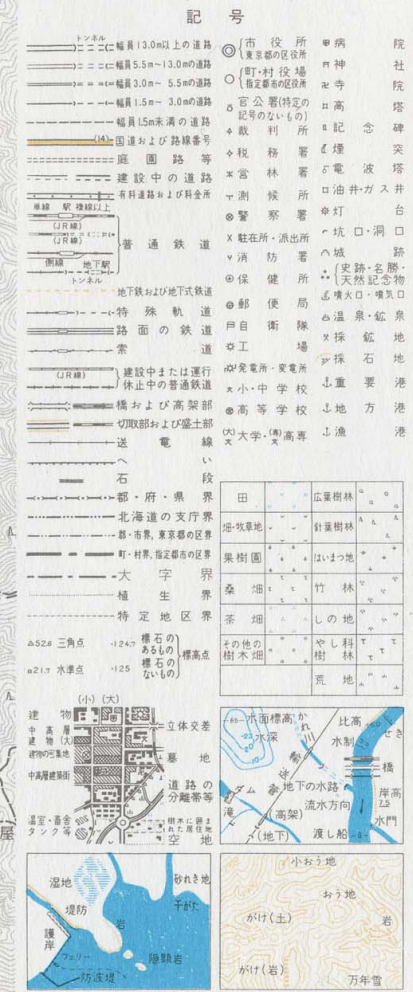 記号
トンネル
幅員13.0m以上の道路
幅員5.5m〜13.0mの道路
幅員3.0m〜5.5mの道路
幅員1.5m〜3.0mの道路
幅員1.5m未満の道路
(14) 国道および路線番号
庭園路等
建設中の道路
有料道路および料金所
単線 駅 複線以上
(JR線)
(JR線)
普通鉄道
側線 地下駅
トンネル
地下鉄および地下式鉄道
特殊軌道
路面の鉄道
索道
(JR線)
建設中または運行
休止中の普通鉄道
橋および高架部
切取部および盛土部
送電線
へい
石段
都・府・県界
北海道の支庁界
郡・市界、東京都の区界
町・村界、指定都市の区界
大字界
植生界
特定地区界
△52.6 三角点
・124.7 標石のあるもの
標高点
21.7 水準点
・125 標石のないもの
市役所
東京都の区役所
町・村役場
指定都市の区役所
官公署(特定の
記号のないもの)
裁判所
税務署
営林署
測候所
警察署
駐在所・派出所
消防署
保健所
郵便局
自衛隊
工場
発電所・変電所
小・中学校
高等学校
(大) 大学・(専) 高専
病院
神社
寺院
高塔
記念碑
煙突
電波塔
油井・ガス井
灯台
坑口・洞口
城跡
史跡・名勝・
天然記念物
噴火口・噴気口
温泉・鉱泉
採鉱地
採石地
重要港
地方港
漁港
田
広葉樹林
畑・牧草地
針葉樹林
果樹園
はいまつ地
桑畑
竹林
茶畑
しの地
その他の
樹木畑
やし科
樹林
荒地
(小) (大)
建物
中高層
建物(大)
建物の密集地
中高層建築街
温室・畜舎
タンク等
立体交差
墓地
道路の
分離帯等
樹木に囲ま
れた居住地
空地
水面標高
水深
かれ川
比高
せき
水制
橋
地下の水路
岸高
流水方向
ダム
滝
(高架)
(地下)
渡し船
水門
湿地
砂れき地
干がた
堤防
岩
護岸
隠顕岩
フェリー
防波堤
小おう地
おう地
がけ(土)
岩
がけ(岩)
万年雪
屋